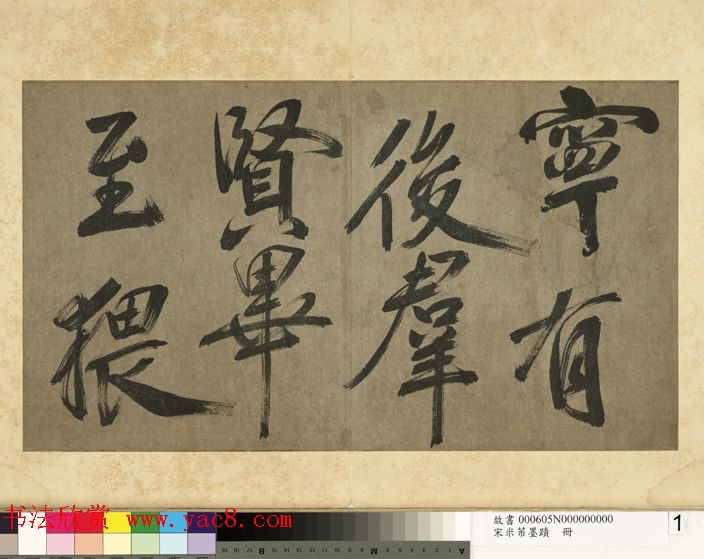 寧有
後羣
賢畢
至猥
故書 000605N000000000
宋米芾墨蹟 冊
1
书法欣赏 www.yac8.com